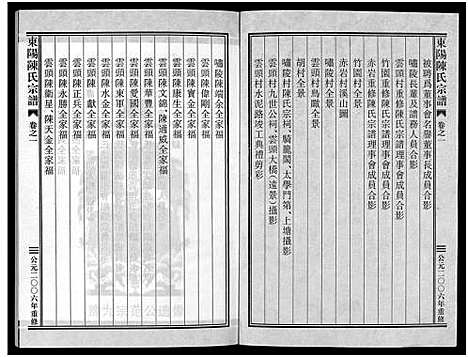 東陽陳氏宗譜
卷之一
公元二〇〇六年重修
被聘爲董事會名譽董事長成員合影
嘯陵長董及譜務人員合影
雲頭村重修陳氏宗譜理事會成員合影
赤岩重修陳氏宗譜理事會成員合影
竹園村重修陳氏宗譜理事會成員合影
竹園村全景
赤岩村溪山圖
嘯陵村全景
雲頭村鳥瞰全景
胡村全景
嘯陵村陳氏宗祠、騎龍閣、太學門第、上塘攝影
雲頭村九世公祠、雲頭大橋(遠景)攝影
雲頭村水泥路竣工典禮剪彩
嘯陵陳瑞余全家福
雲頭陳偉剛全家福
雲頭陳寶金全家福
雲頭陳康生全家福
雲頭陳文錦、陳適威全家福
雲頭陳華豐全家福
雲頭陳愛國全家福
雲頭陳東軍全家福
雲頭陳水金全家福
雲頭陳獻全家福
雲頭陳正兵全家福
雲頭陳永勝全家福
雲頭陳衛星、陳天金全家福
東陽陳氏宗譜
卷之一
公元二〇〇六年重修